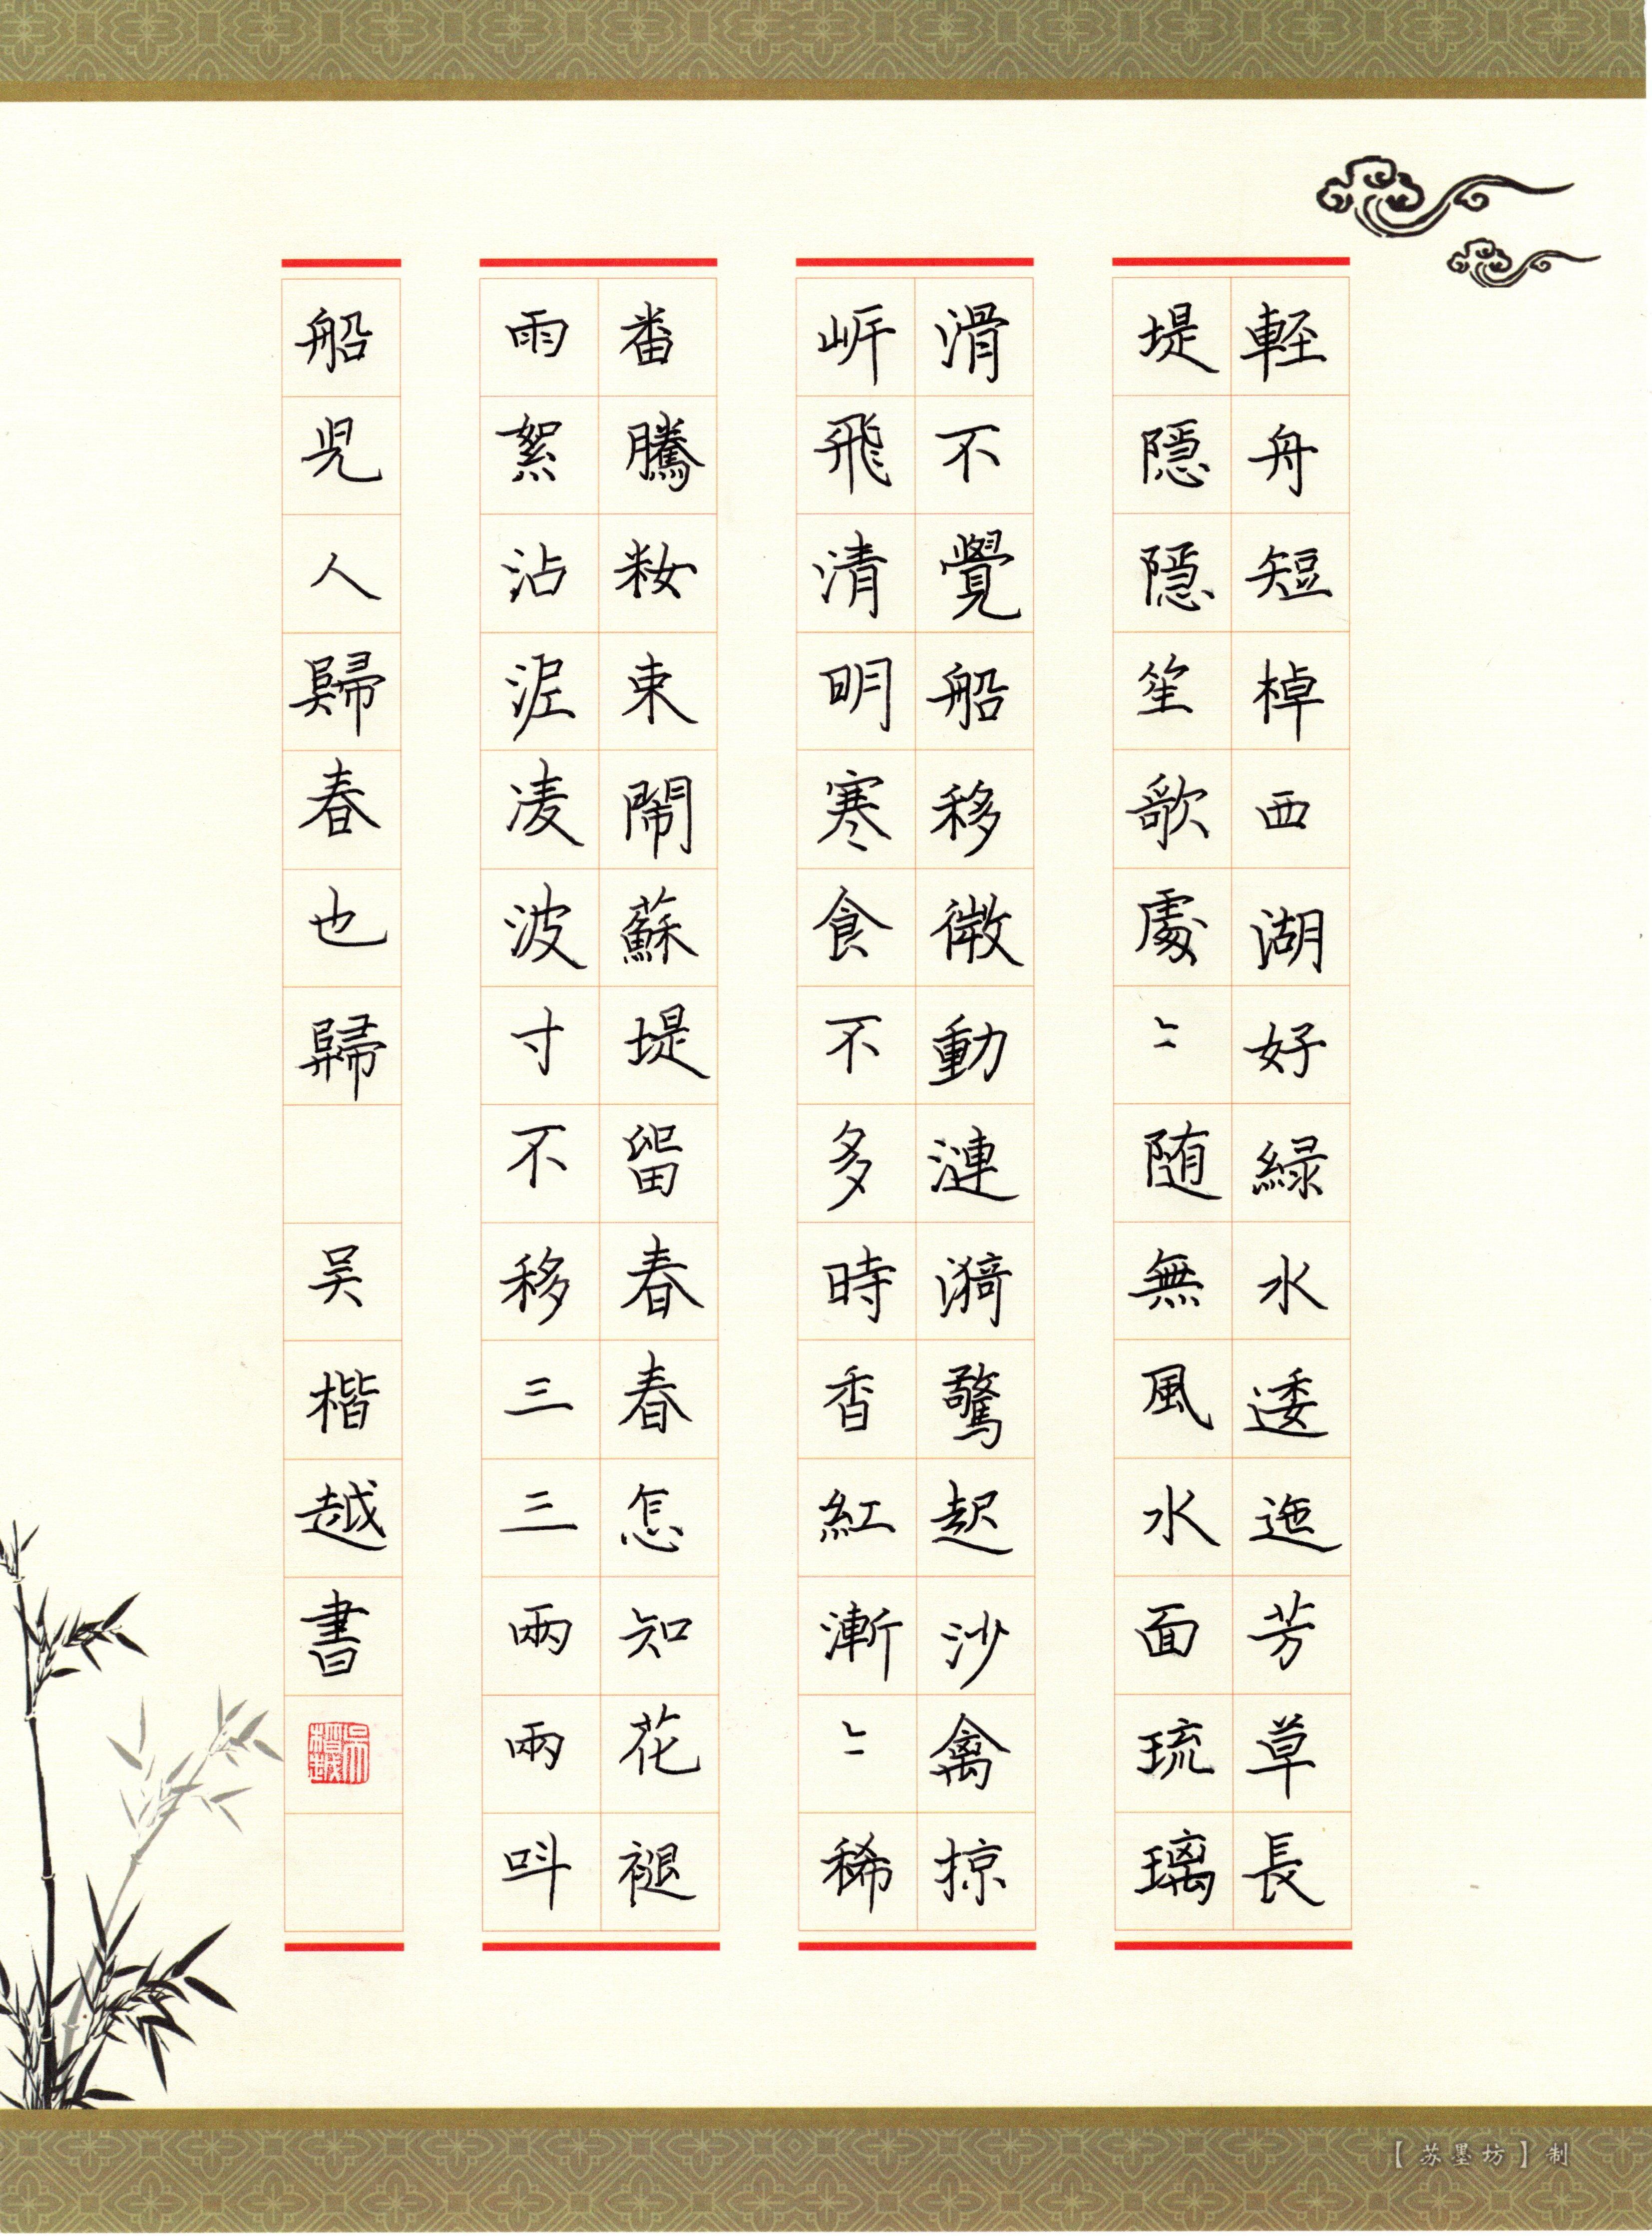 輕舟短棹西湖好綠水逶迤芳草長
堤隱隱笙歌處〻随無風水面琉璃
滑不覺船移微動漣漪驚起沙禽掠
岸飛清明寒食不多時香紅漸〻稀
番騰籹束鬧蘇堤留春春怎知花褪
雨絮沾泥凌波寸不移三三兩兩叫
船兒人歸春也歸 吴楷越書
吴楷越
【苏墨坊】制